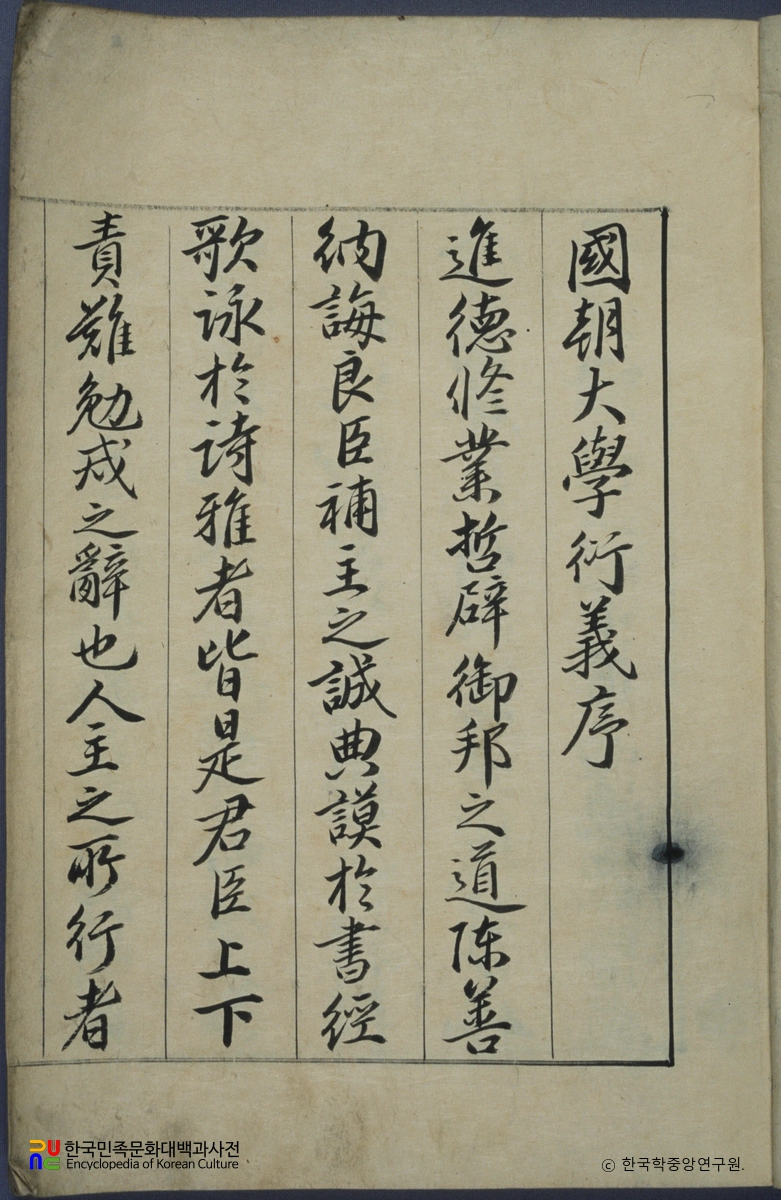 國朝大學衍義序
進德修業哲辟御邦之道陳善
納誨良臣補主之誠典謨於書經
歌詠於詩雅者皆是君臣上下
責難勉戒之辭也人主之所行者
한국민족문화대백과사전
Encyclopedia of Korean Culture
ⓒ 한국학중앙연구원.